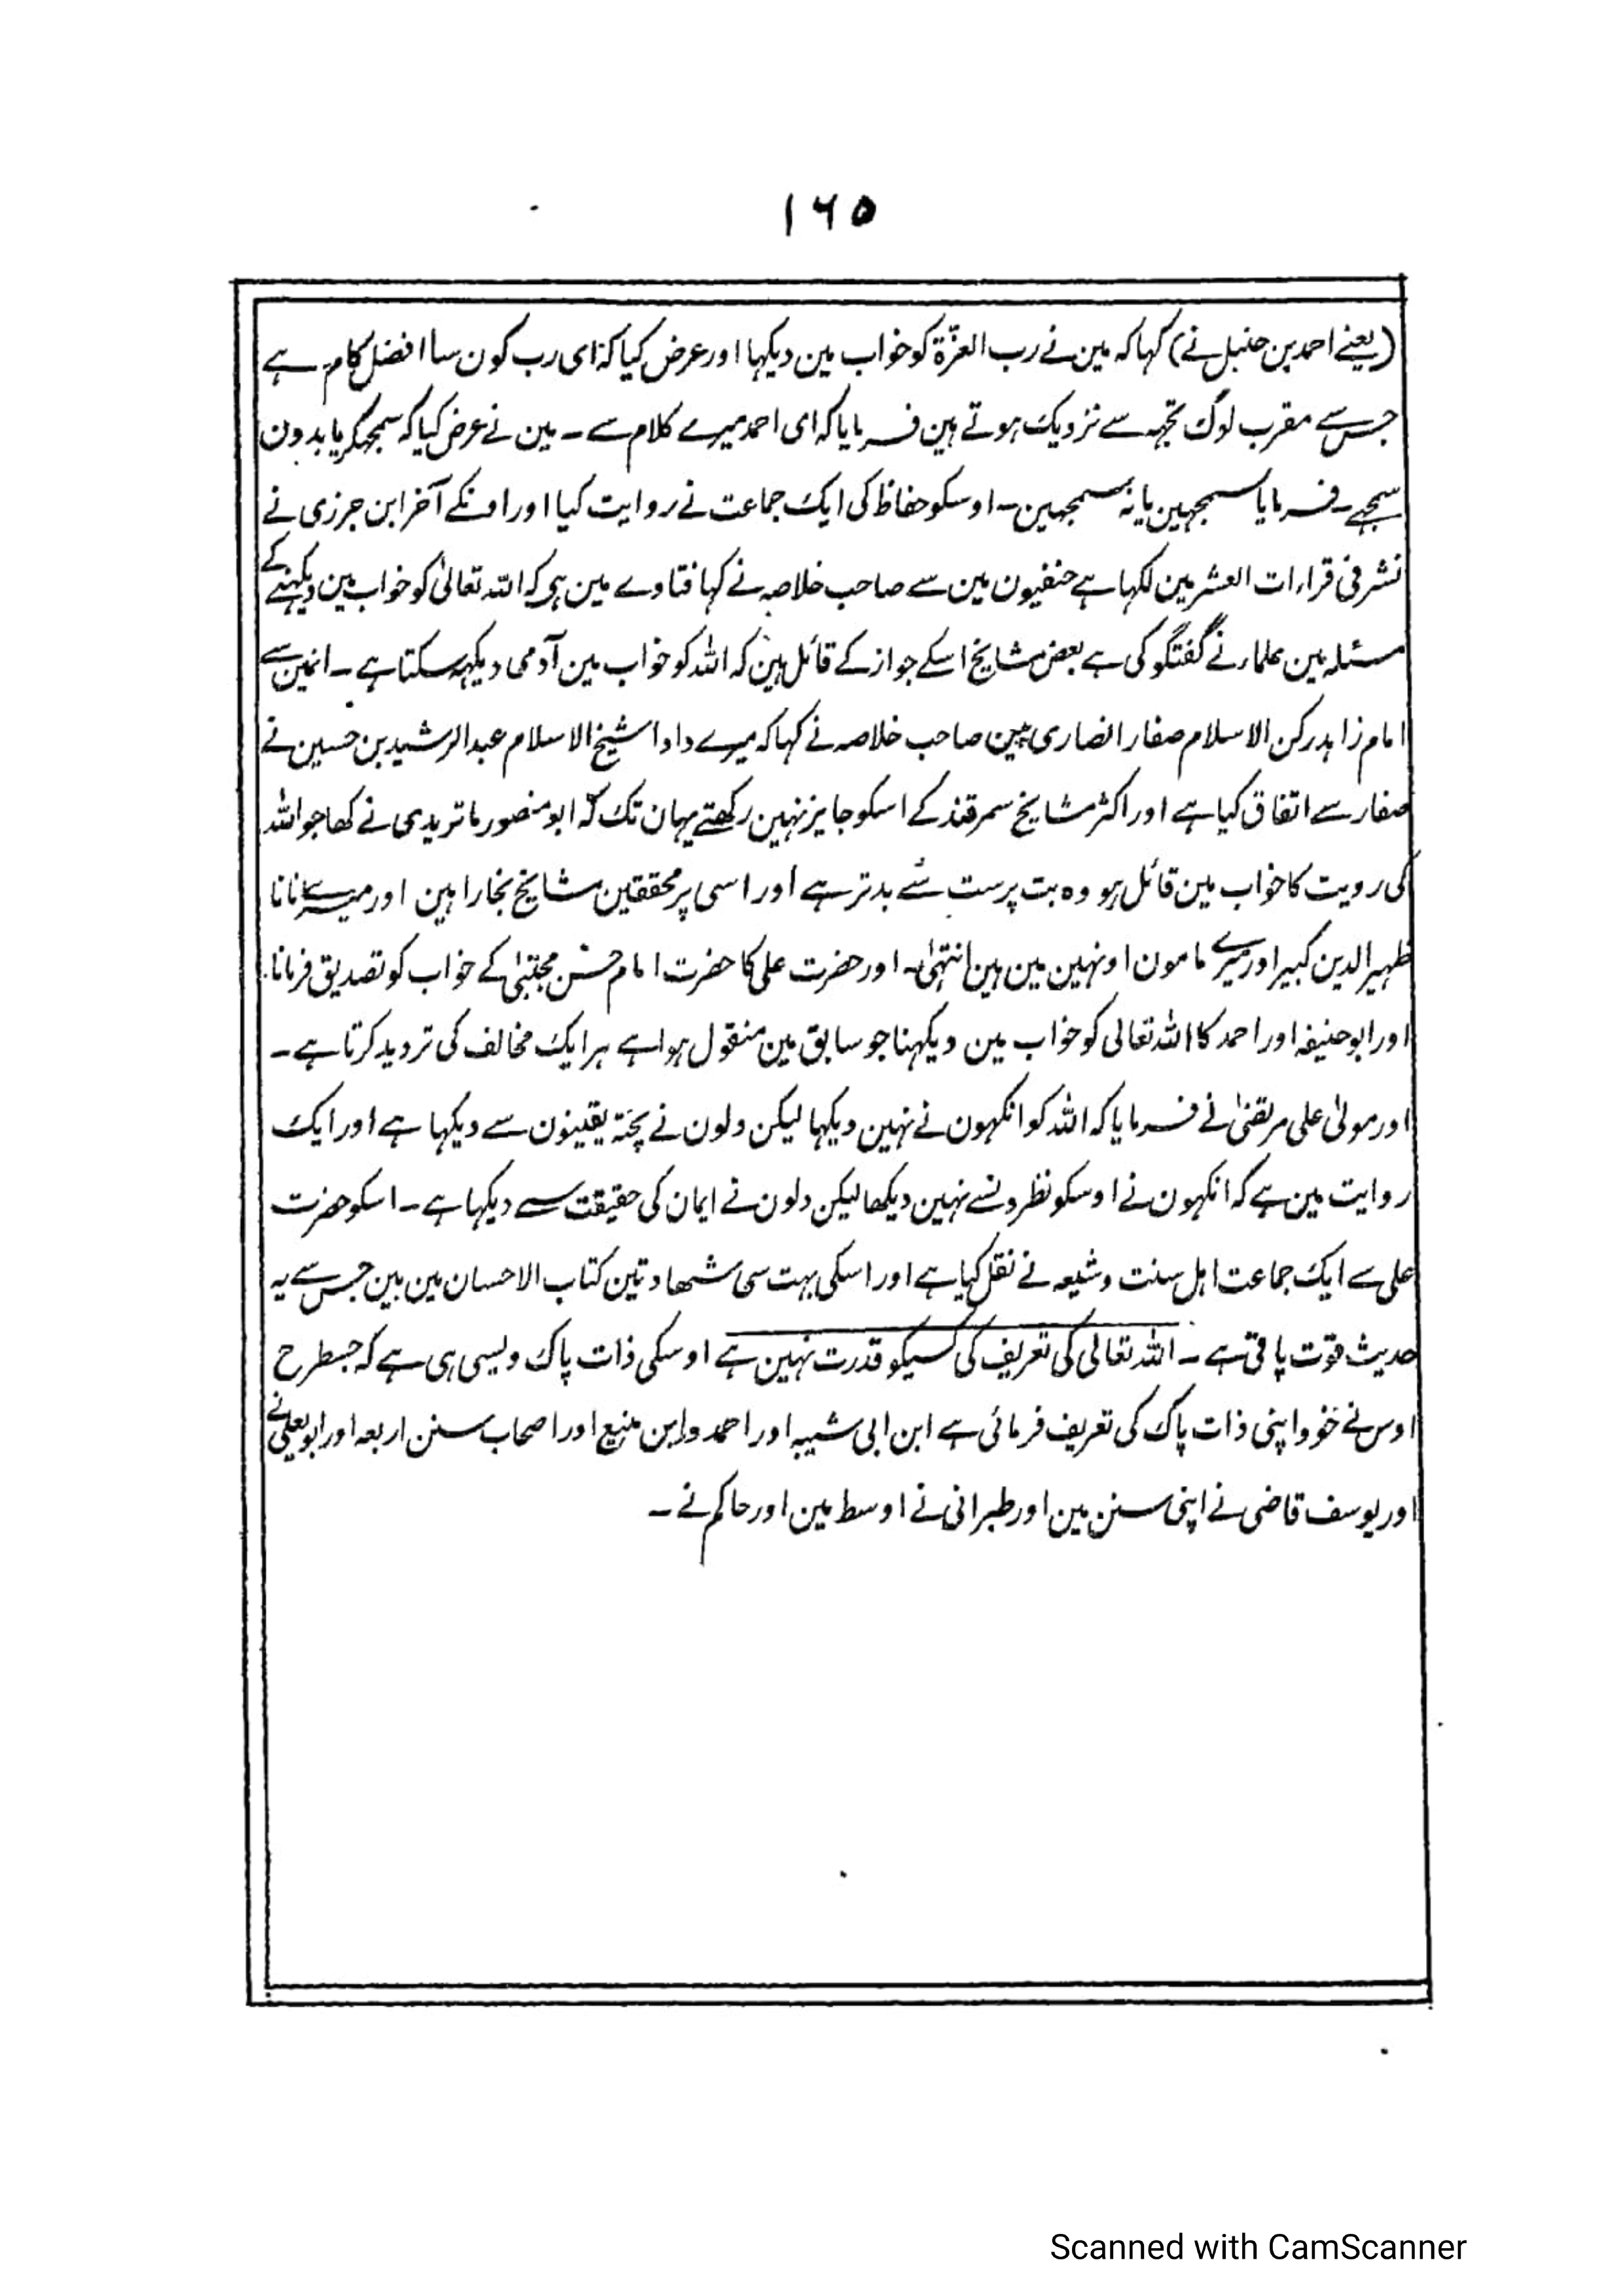 ۱۶۵
(یعنے احمد بن حنبل نے) کہا کہ مین نے رب العزۃ کو خواب مین دیکہا اور عرض کیا کہ ای رب کون سا افضل کام ہے
جس سے مقرب لوگ تجہہ سے نزدیک ہوتے ہین فرمایا کہ ای احمد میرے کلام سے ۔ مین نے عرض کیا کہ سمجہکر یا بدون
سمجہے ۔ فرمایا سمجہین یا نہ سمجہین ۔ اوسکو حفاظ کی ایک جماعت نے روایت کیا اور اونکے آخر ابن جرزی نے
نشر فی قراءات العشر مین لکہا ہے حنفیون مین سے صاحب خلاصہ نے کہا فتاوے مین ہی کہ اللہ تعالیٰ کو خواب مین دیکہنے کے
مسئلہ مین علماء نے گفتگو کی ہے بعض مشایخ اسکے جواز کے قائل ہین کہ اللہ کو خواب مین آدمی دیکہہ سکتا ہے ۔ انمین سے
امام زاہد رکن الاسلام صفار انصاری ہین صاحب خلاصہ نے کہا کہ میرے دادا شیخ الاسلام عبد الرشید بن حسین نے
صفار سے اتفاق کیا ہے اور اکثر مشایخ سمرقند کے اسکو جایز نہین رکھتے یہان تک کہ ابو منصور ماتریدی نے کھا جو اللہ
کی رویت کا خواب مین قائل ہو وہ بت پرست سے بدتر ہے اور اسی پر محققین مشایخ بخارا ہین اور میرے نانا
ظہیر الدین کبیر اور میرے مامون اونہین مین ہین انتہیٰ ۔ اور حضرت علی کا حضرت امام حسن مجتبیٰ کے خواب کو تصدیق فرمانا
اور ابو حنیفہ اور احمد کا اللہ تعالی کو خواب مین دیکہنا جو سابق مین منقول ہوا ہے ہر ایک مخالف کی تردید کرتا ہے ۔
اور مولیٰ علی مرتضیٰ نے فرمایا کہ اللہ کو انکہون نے نہین دیکہا لیکن دلون نے پختہ یقینون سے دیکہا ہے اور ایک
روایت مین ہے کہ انکہون نے اوسکو نظرونسے نہین دیکھا لیکن دلون نے ایمان کی حقیقت سے دیکہا ہے ۔ اسکو حضرت
علی سے ایک جماعت اہل سنت و شیعہ نے نقل کیا ہے اور اسکی بہت سی شہادتین کتاب الاحسان مین ہین جس سے یہ
حدیث قوت پاتی ہے ۔ اللہ تعالی کی تعریف کی کسیکو قدرت نہین ہے اوسکی ذات پاک ویسی ہی ہے کہ جسطرح
اوس نے خود اپنی ذات پاک کی تعریف فرمائی ہے ابن ابی شیبہ اور احمد و ابن منیع اور اصحاب سنن اربعہ اور ابو یعلیٰ نے
اور یوسف قاضی نے اپنی سنن مین اور طبرانی نے اوسط مین اور حاکم نے ۔
Scanned with CamScanner